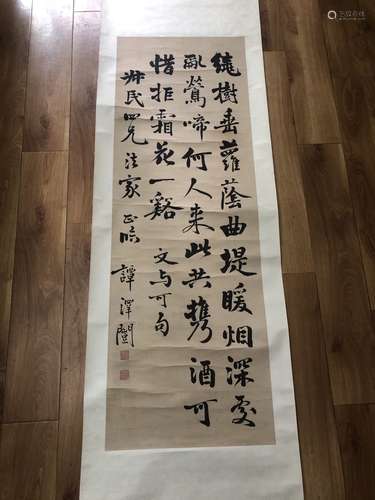 繞樹垂蘿蔭曲堤暖烟深處
亂鶯啼何人来此共携酒可
惜拒霜花一谿 文与可句
叔民四兄法家正临 譚澤闓